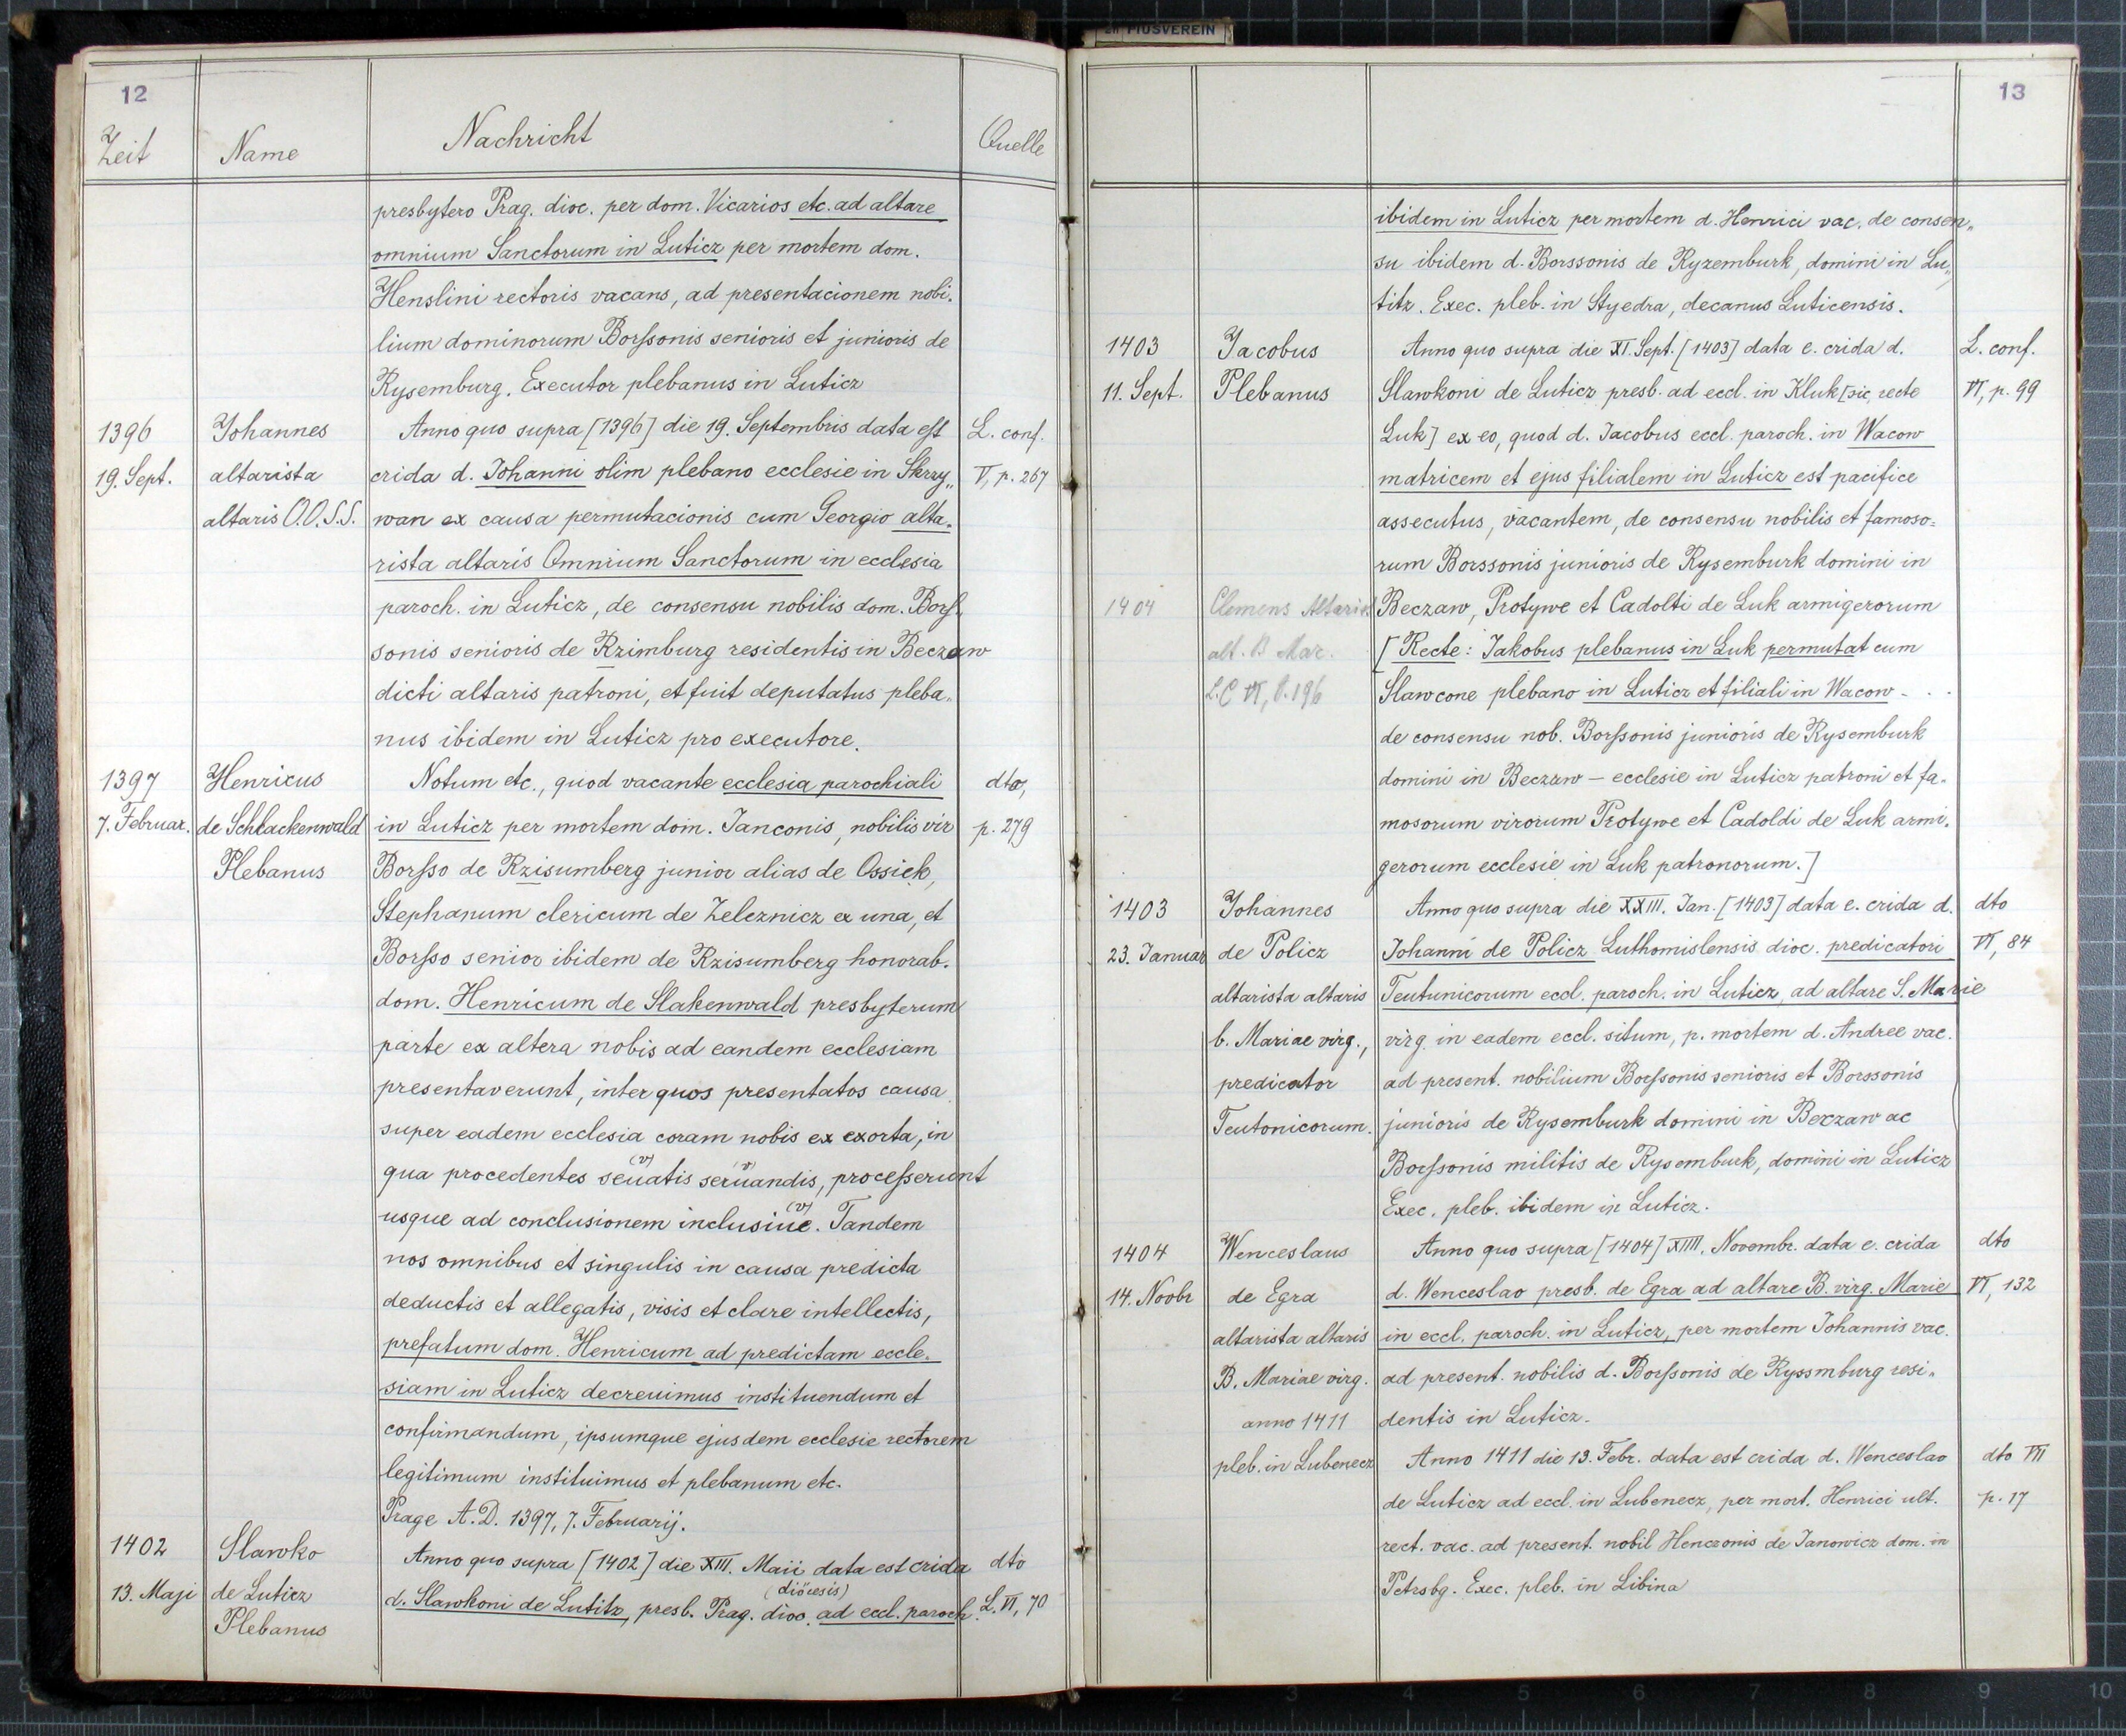 12
Zeit Name Nachricht Quelle
presbytero Prag. dioc. per dom. Vicarios etc. ad altare
omnium Sanctorum in Luticz per mortem dom.
Henslini rectoris vacans, ad presentacionem nobi-
lium dominorum Borssonis senioris et junioris de
Rysemburg. Executor plebanus in Luticz
1396 Johannes Anno quo supra [1396] die 19. Septembris data est L. conf.
19. Sept. altarista crida d. Johanni olim plebano ecclesie in Skrzy„ V, p. 267
altaris O.O.S.S. wan ex causa permutacionis cum Georgio alta-
rista altaris Omnium Sanctorum in ecclesia
paroch. in Luticz, de consensu nobilis dom. Bors-
sonis senioris de Rzimburg residentis in Beczaw
dicti altaris patroni, et fuit deputatus pleba-
nus ibidem in Luticz pro executore.
1397 Henricus Notum etc., quod vacante ecclesia parochiali dto,
7. Februar. de Schlackenwald in Luticz per mortem dom. Janconis, nobilis vir p. 279
Plebanus Borsso de Rzisumberg junior alias de Ossiek,
Stephanum clericum de Zeleznicz ex una, et
Borsso senior ibidem de Rzisumberg honorab.
dom. Henricum de Slakenwald presbyterum
parte ex altera nobis ad eandem ecclesiam
presentaverunt, inter quos presentatos causa
super eadem ecclesia coram nobis ex exorta, in
(v) (v)
qua procedentes seuatis seruandis, processerunt
(v)
usque ad conclusionem inclusiue. Tandem
nos omnibus et singulis in causa predicta
deductis et allegatis, visis et clare intellectis,
prefatum dom. Henricum ad predictam eccle-
siam in Luticz decreuimus instituendum et
confirmandum, ipsumque ejusdem ecclesie rectorem
legitimum instituimus et plebanum etc.
Prage A.D. 1397, 7. Februarij.
1402 Slawko Anno quo supra [1402] die XIII. Maii data est crida dto
(diöcesis)
13. Maji de Luticz d. Slawkoni de Lutitz, presb. Prag. dioc. ad eccl. paroch. L. VI, 70
Plebanus
PIUSVEREIN
13
ibidem in Luticz per mortem d. Henrici vac. de consen„
su ibidem d. Borssonis de Ryzemburk, domini in Lu„
titz. Exec. pleb. in Styedra, decanus Luticensis.
1403 Jacobus Anno quo supra die XI. Sept. [1403] data e. crida d. L. conf.
11. Sept. Plebanus Slawkoni de Luticz presb. ad eccl. in Kluk [sic, recte VI, p. 99
Luk] ex eo, quod d. Jacobus eccl. paroch. in Wacow
matricem et ejus filialem in Luticz est pacifice
assecutus, vacantem, de consensu nobilis et famoso=
rum Borssonis junioris de Rysemburk domini in
1404 Clemens Altarist Beczaw, Protywe et Cadolti de Luk armigerorum
alt. B. Mar. [Recte: Jakobus plebanus in Luk permutat cum
L.C VI, p. 196 Slawcone plebano in Luticz et filiali in Wacow - . .
de consensu nob. Borssonis junioris de Rysemburk
domini in Beczaw — ecclesie in Luticz patroni et fa-
mosorum virorum Protywe et Cadoldi de Luk armi-
gerorum ecclesie in Luk patronorum.]
1403 Johannes Anno quo supra die XXIII. Jan. [1403] data e. crida d. dto
23. Januar de Policz Johanni de Policz Luthomislensis dioc. predicatori VI, 84
altarista altaris Teutunicorum eccl. paroch. in Luticz, ad altare S. Marie
b. Mariae virg., virg. in eadem eccl. situm, p. mortem d. Andree vac.
predicator ad present. nobilium Borssonis senioris et Borssonis
Teutonicorum. junioris de Rysemburk domini in Beczaw ac
Borssonis militis de Rysemburk, domini in Luticz
Exec. pleb. ibidem in Luticz.
1404 Wenceslaus Anno quo supra [1404] XIIII. Novembr. data e. crida dto
14. Novbr de Egra d. Wenceslao presb. de Egra ad altare B. virg. Marie VI, 132
altarista altaris in eccl. paroch. in Luticz, per mortem Johannis vac.
B. Mariae virg. ad present. nobilis d. Borssonis de Ryssmburg resi-
anno 1411 dentis in Luticz.
pleb. in Lubenecz Anno 1411 die 13. Febr. data est crida d. Wenceslao dto VII
de Luticz ad eccl. in Lubenecz, per mort. Henrici ult. p. 17
rect. vac. ad present. nobil Henczonis de Janowicz dom. in
Petrsbg. Exec. pleb. in Libina
2 3 4 5 6 7 8 9 10